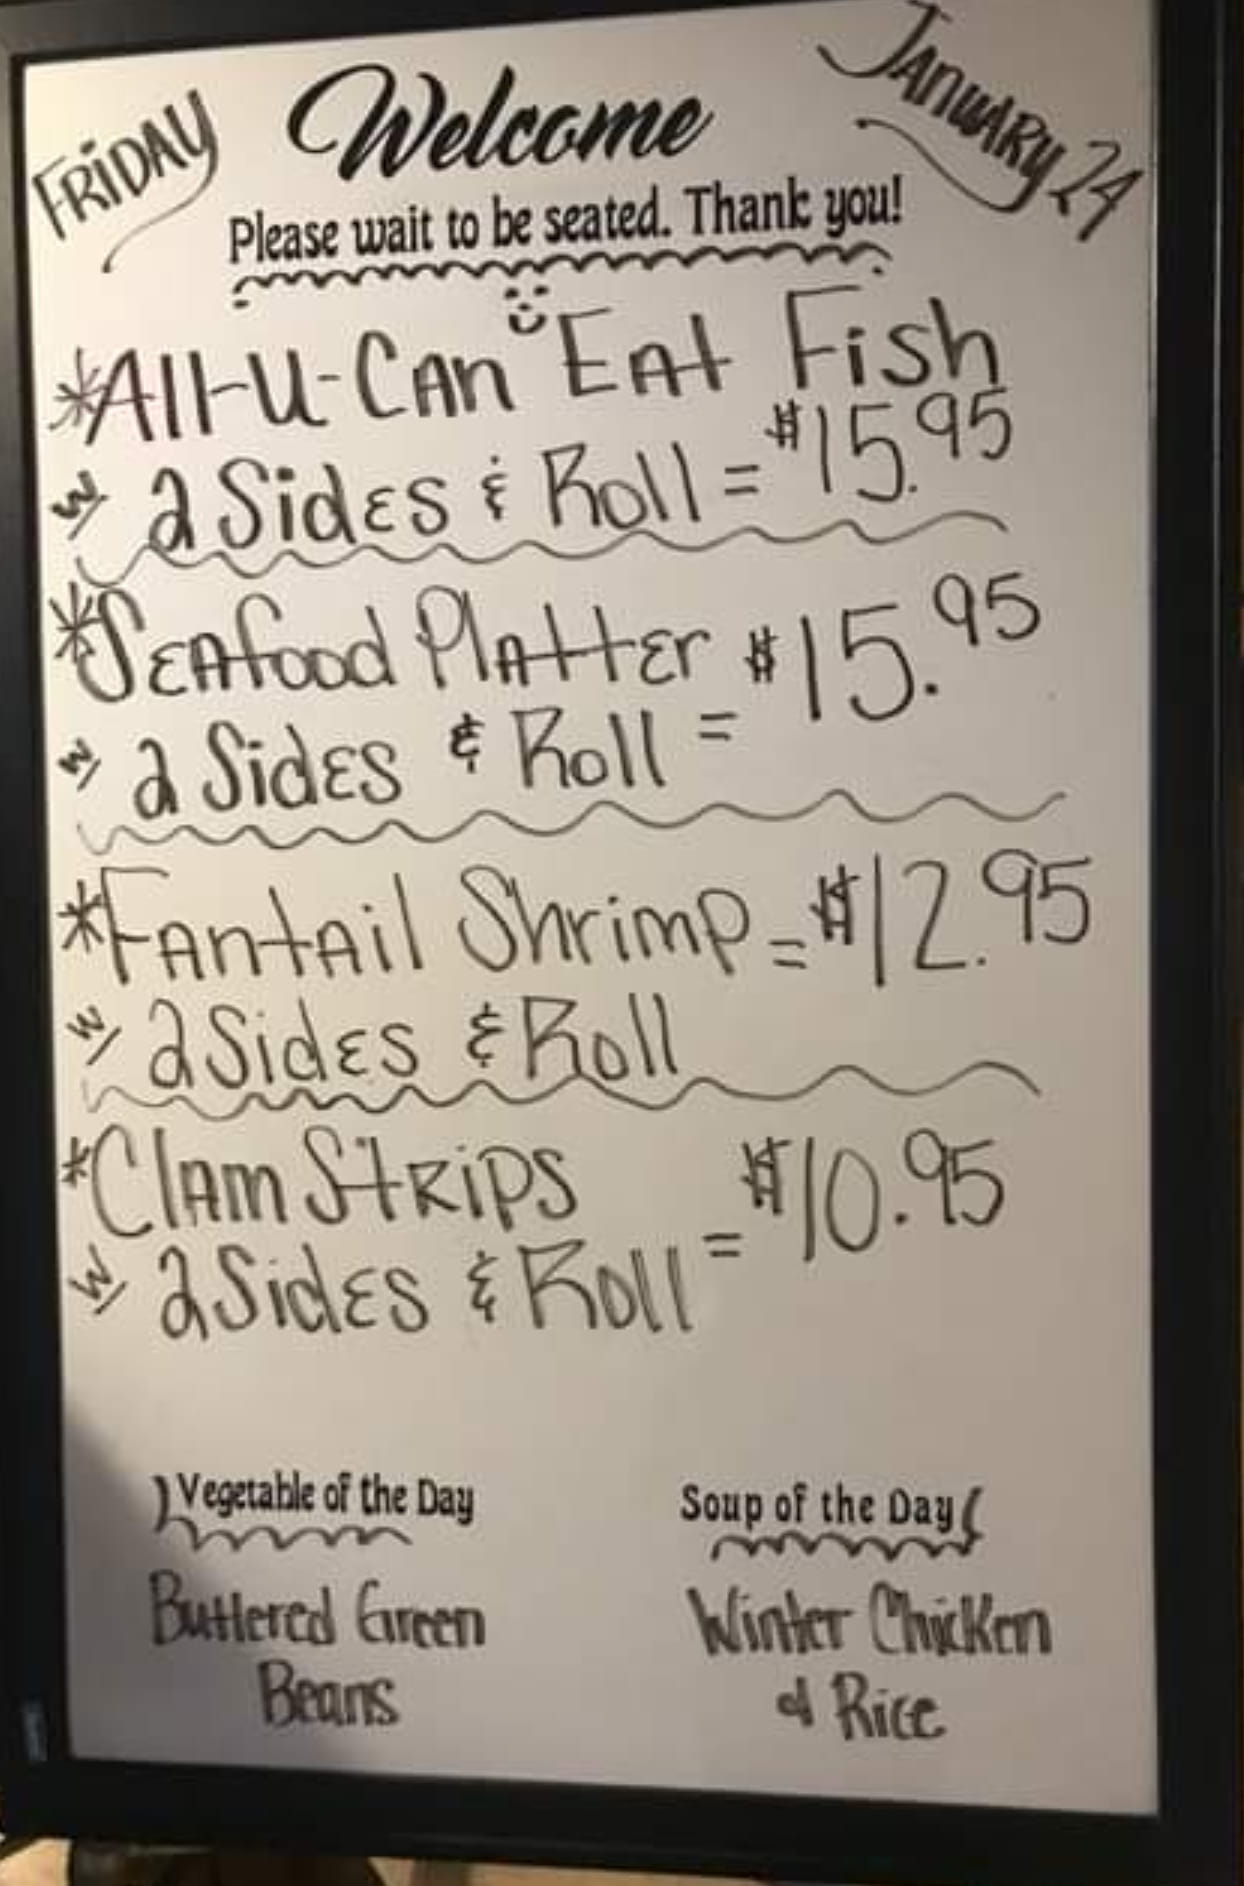 FRiDAY
Welcome
JANUARY 24
Please wait to be seated. Thank you!
*All-U-CAn EAt Fish
w/ 2 Sides & Roll = $15.95
*SEAfood PlAttEr $15.95
w/ 2 Sides & Roll =
*FAntAil Shrimp = $12.95
w/ 2 Sides & Roll
*ClAm StRips $10.95
w/ 2 Sides & Roll =
Vegetable of the Day
Buttered Green
Beans
Soup of the Day
Winter Chicken
& Rice